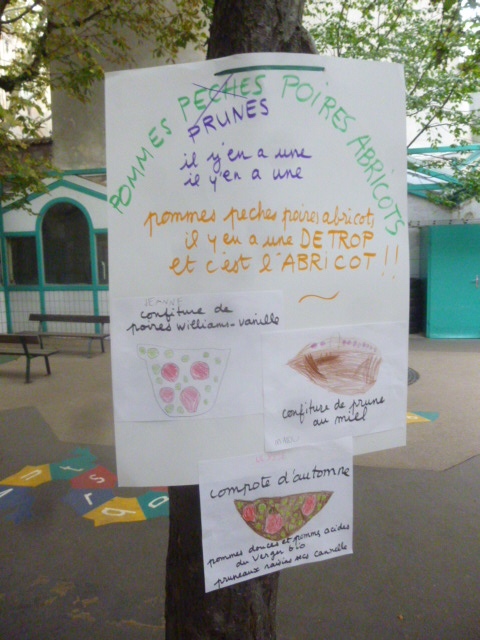 POMMES PÊCHES POIRES ABRICOTS
PRUNES
il y'en a une
il y'en a une
pommes peches poires abricots
il y en a une DE TROP
et c'est l'ABRICOT !!
confiture de
poires williams-vanille
confiture de prune
au miel
compote d'automne
pommes douces et pommes acides
du Verger bio
pruneaux raisins secs cannelle